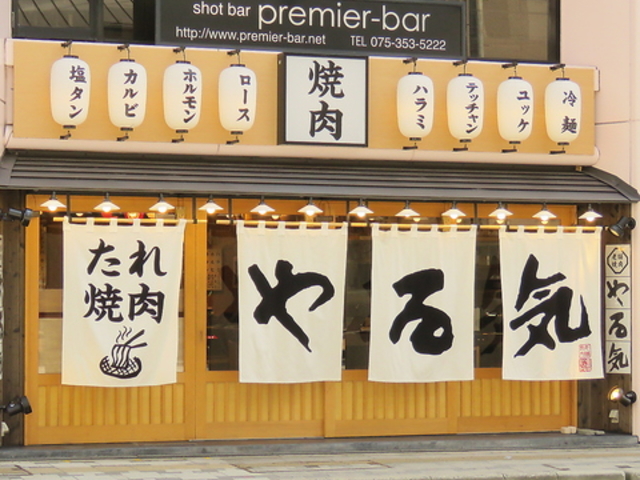 shot bar premier-bar
http://www.premier-bar.net TEL 075-353-5222
塩タン
カルビ
ホルモン
ロース
焼肉
ハラミ
テッチャン
ユッケ
冷麺
たれ
焼肉
やる気
やる気